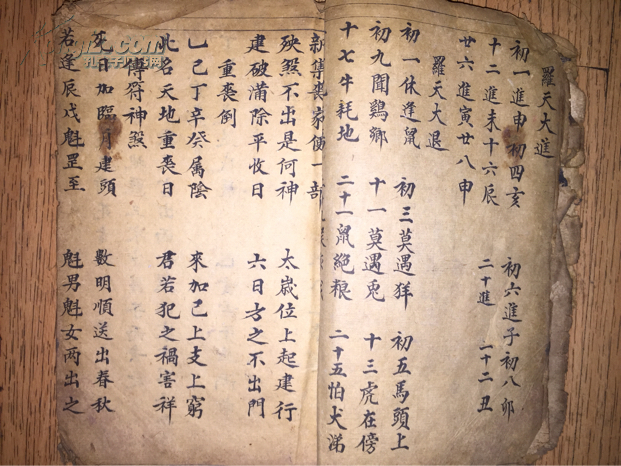 羅天大進
初一進申初四亥 初六進子初八卯
十二進未十六辰 二十進 二十二丑
廿六進寅廿八申
羅天大退
初一休逢鼠 初三莫遇羊 初五馬頭上
初九聞鷄鄉 十一莫遇兎 十三虎在傍
十七牛耗地 二十一鼠絶粮 二十五怕犬涕
新集丧家便一部
殃煞不出是何神 太歲位上起建行
建破滿除平收日 六日才之不出門
重丧例
乙己丁辛癸属陰 來加己上支上窮
此名天地重丧日 君若犯之禍害祥
傳符神煞
死日加臨月建頭 數明順送出春秋
若逢辰戌魁罡至 魁男魁女两出之